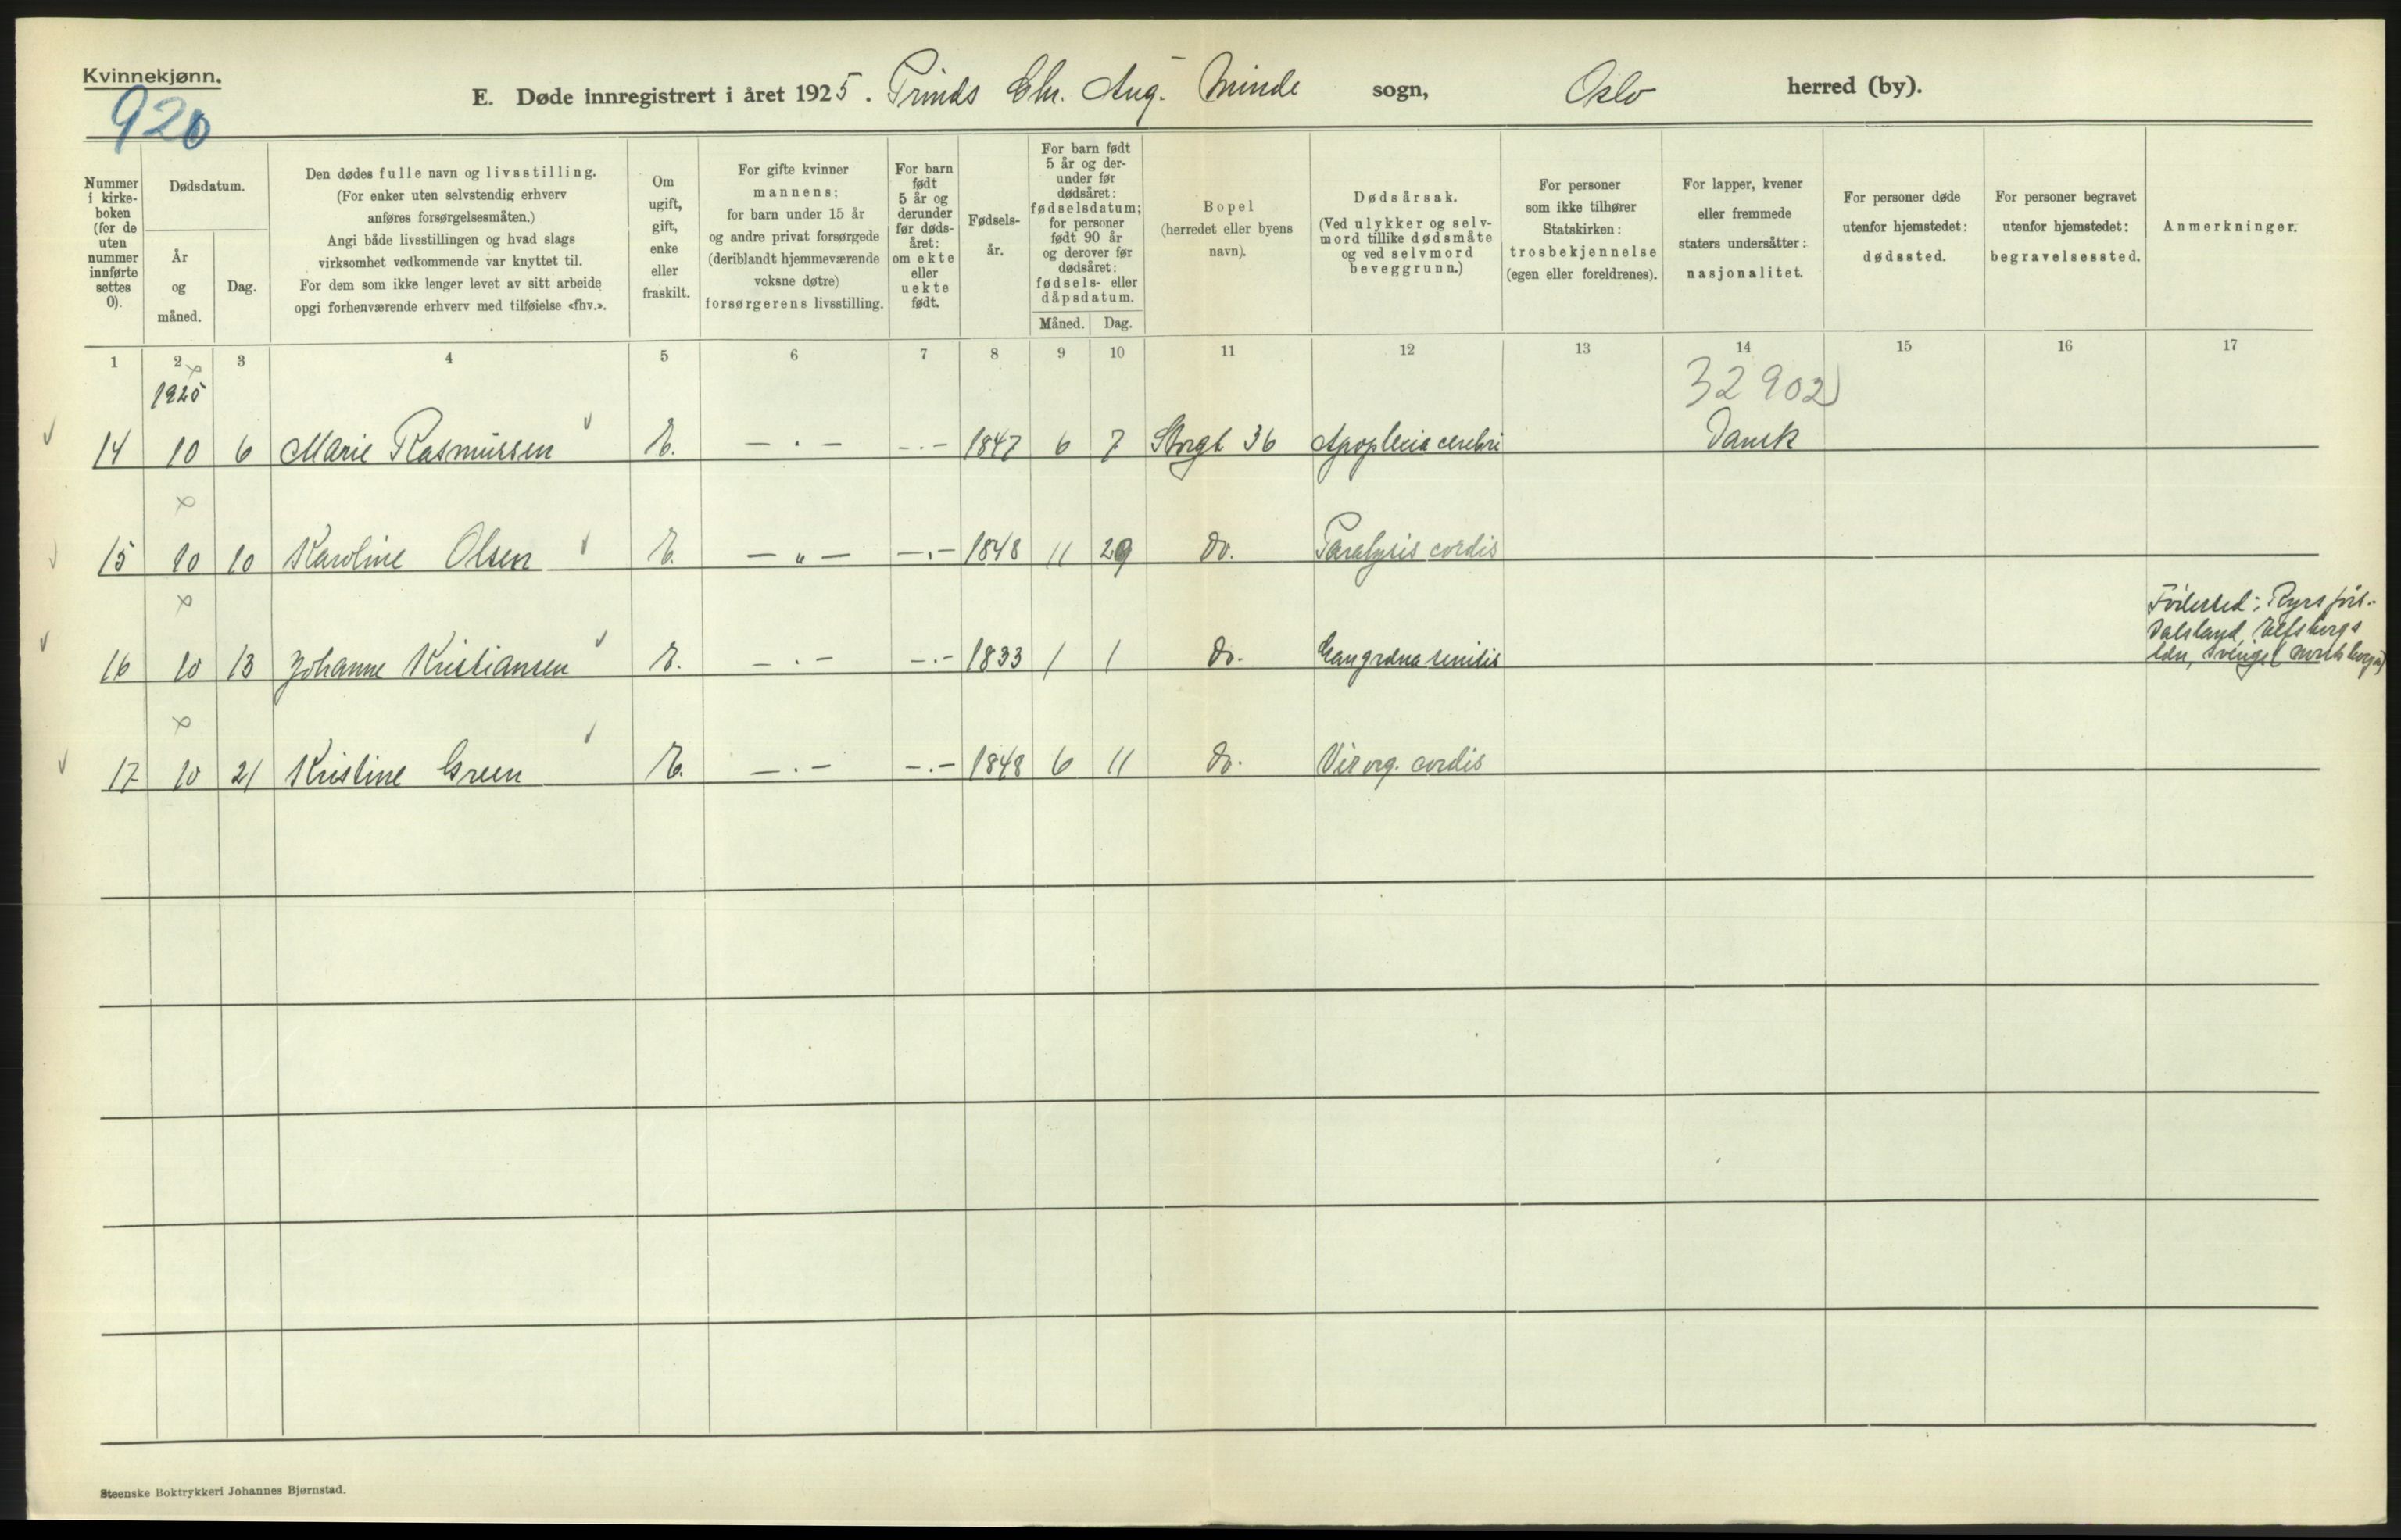 Kvinnekjønn.
920
E. Døde innregistrert i året 1925. Prinds Chr. Aug. Minde sogn, Oslo herred (by).
Nummer i kirke-boken (for de uten nummer innførte settes 0).
Dødsdatum.
År og måned.
Dag.
Den dødes fulle navn og livsstilling.
(For enker uten selvstendig erhverv
anføres forsørgelsesmåten.)
Angi både livsstillingen og hvad slags
virksomhet vedkommende var knyttet til.
For dem som ikke lenger levet av sitt arbeide
opgi forhenværende erhverv med tilføielse «fhv.».
Om ugift, gift, enke eller fraskilt.
For gifte kvinner
mannens;
for barn under 15 år
og andre privat forsørgede
(deriblandt hjemmeværende
voksne døtre)
forsørgerens livsstilling.
For barn født 5 år og derunder før døds-året: om ekte eller uekte født.
Fødsels-år.
For barn født 5 år og der-under før dødsåret: fødselsdatum; for personer født 90 år og derover før dødsåret: fødsels- eller dåpsdatum.
Måned. Dag.
Bopel
(herredet eller byens
navn).
Dødsårsak.
(Ved ulykker og selv-
mord tillike dødsmåte
og ved selvmord
beveggrunn.)
For personer
som ikke tilhører
Statskirken:
trosbekjennelse
(egen eller foreldrenes).
For lapper, kvener
eller fremmede
staters undersåtter:
nasjonalitet.
For personer døde
utenfor hjemstedet:
dødssted.
For personer begravet
utenfor hjemstedet:
begravelsessted.
Anmerkninger.
1 2 3 4 5 6 7 8 9 10 11 12 13 14 15 16 17
1925 32902
14 10 6 Marie Rasmussen E. — . — -.- 1847 6 7 Storgt 36 Apoplexia cerebri Dansk
15 10 10 Karoline Olsen E. — " — -.- 1848 11 29 Do. Paralysis cordis
16 10 13 Johanne Kristiansen E. — . — -.- 1833 1 1 Do. Gangræna senilis
Dalsland, Elfsborgs
17 10 21 Kristine Green E. — . — -.- 1848 6 11 Do. Vit org. cordis
Steenske Boktrykkeri Johannes Bjørnstad.